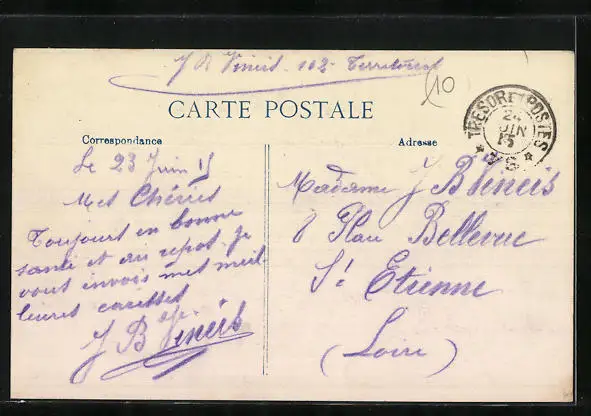 J B Vineis 102e Territorial
10
CARTE POSTALE
Correspondance
Adresse
TRESOR ET POSTES
24
JUIN
15
Le 23 Juin 15
Mes Chéries
Toujours en bonne
santé et au repos. Je
vous invois mes meil
leures caresses
J B Vineis
Madame J B Vineis
8 Place Bellevue
St Etienne
(Loire)